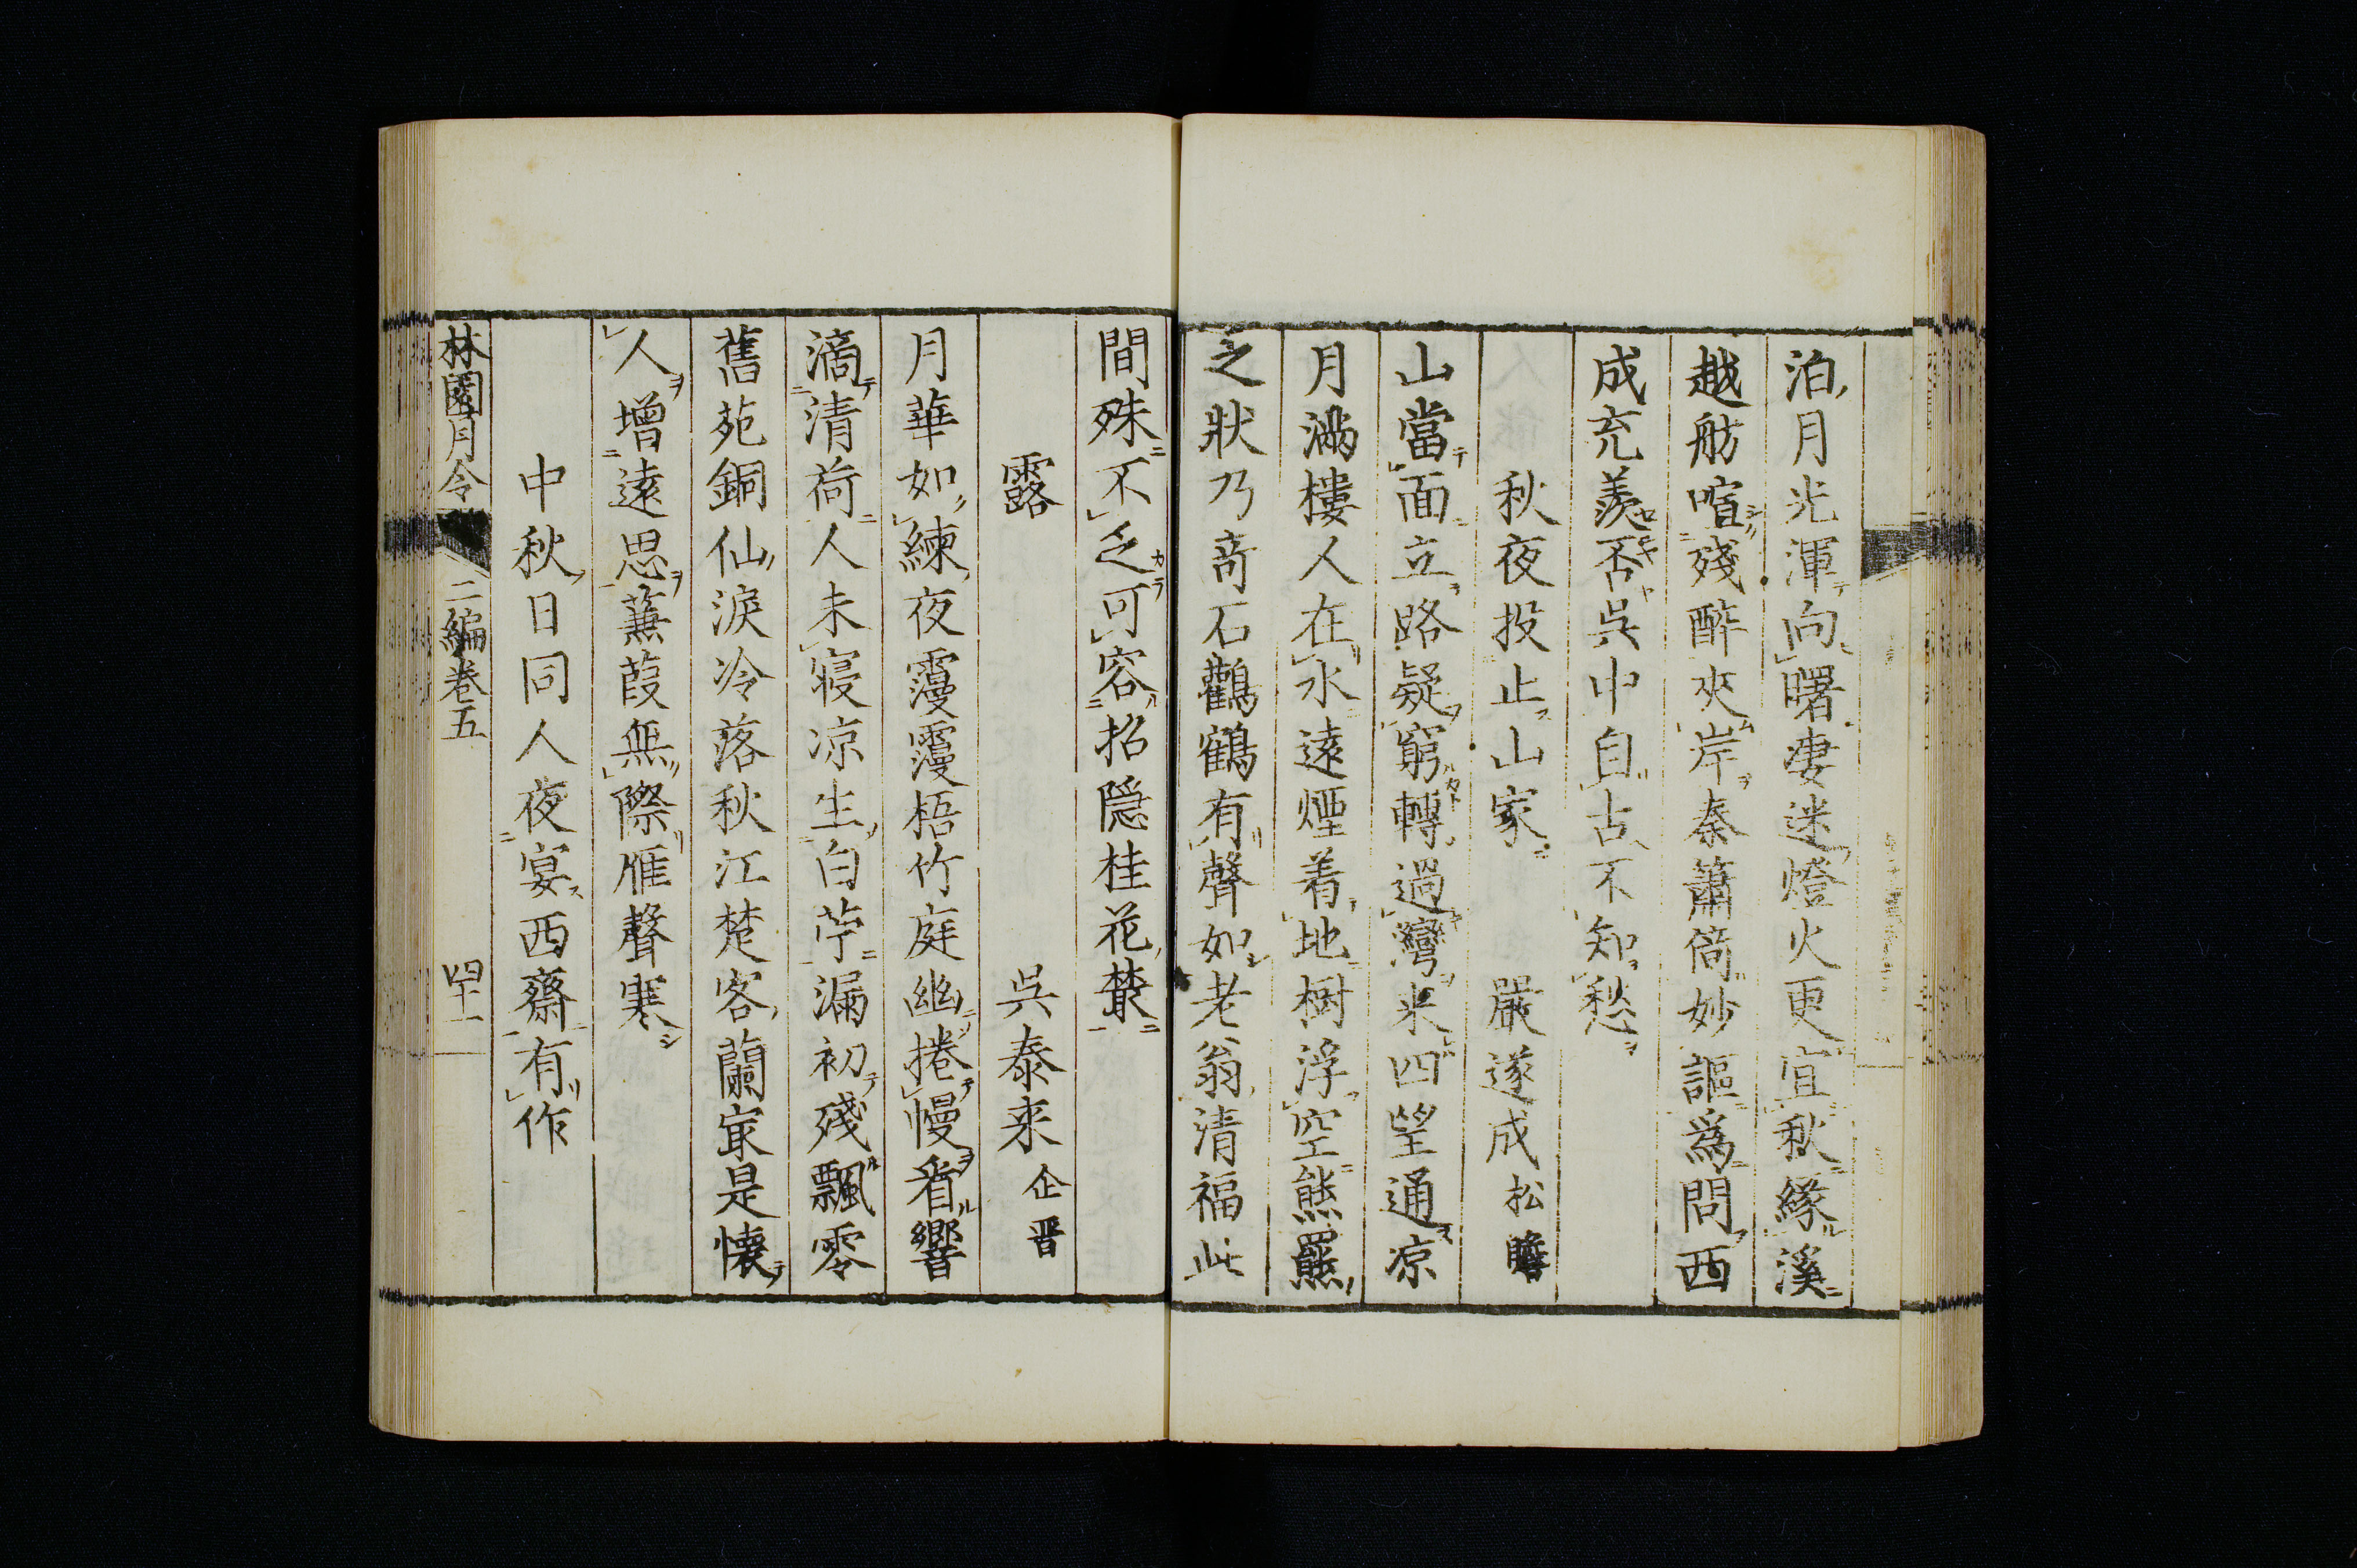 泊月光渾向曙凄迷燈火更宜秋緣溪
越舫喧殘醉夾岸秦簫倚妙謳爲問西
成充羨否吳中自古不知愁
秋夜投止山家 嚴遂成 松瞻
山當面立路疑窮轉過灣來四望通凉
月滿樓人在水遠煙着地樹浮空熊羆
之狀乃奇石鸛鶴有聲如老翁清福此
間殊不乏可容招隠桂花叢
露 吳泰來 企晋
月華如練夜靀靀梧竹庭幽捲幔看響
滴清荷人未寢凉生白苧漏初殘飄零
舊苑銅仙淚冷落秋江楚客蘭寂是懷
人增遠思蒹葭無際雁聲寒
中秋日同人夜宴西齋有作
林園月令 二編卷五 四十一